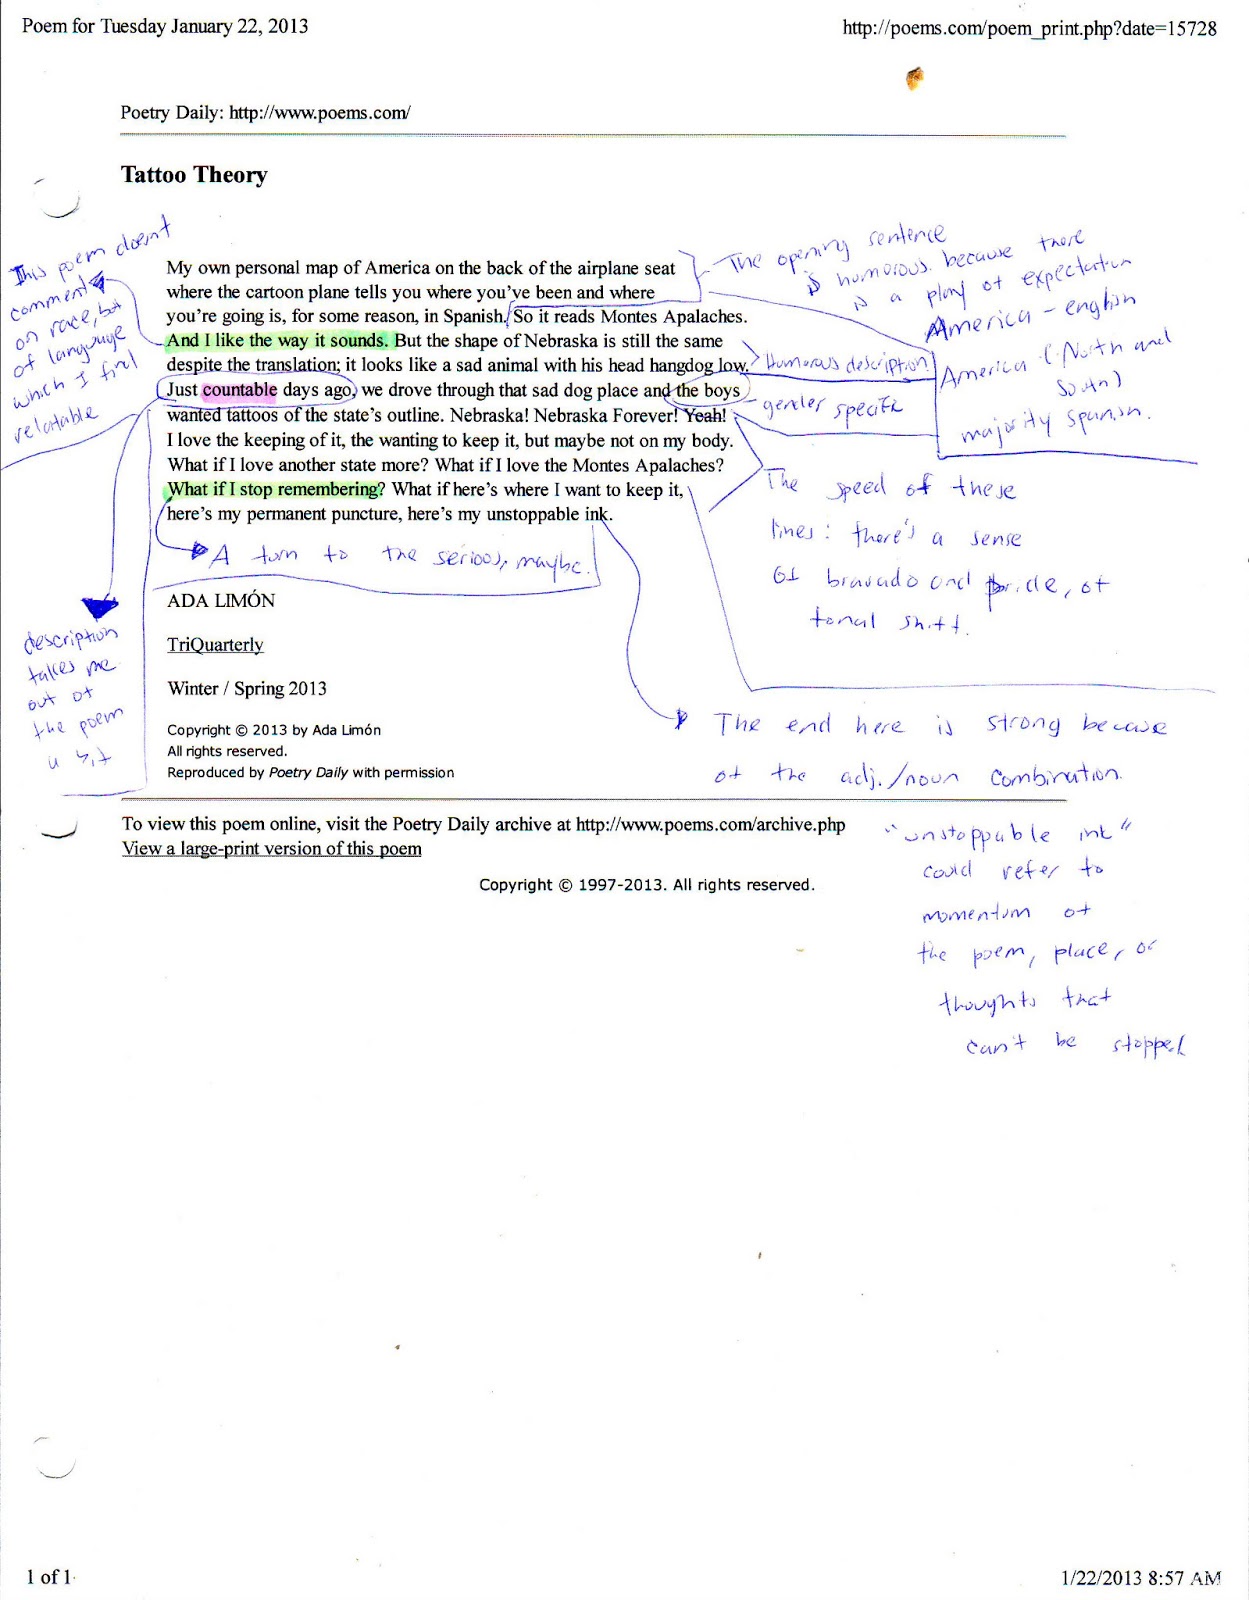 Poem for Tuesday January 22, 2013
http://poems.com/poem_print.php?date=15728
Poetry Daily: http://www.poems.com/
Tattoo Theory
My own personal map of America on the back of the airplane seat
where the cartoon plane tells you where you've been and where
you're going is, for some reason, in Spanish. So it reads Montes Apalaches.
And I like the way it sounds. But the shape of Nebraska is still the same
despite the translation; it looks like a sad animal with his head hangdog low.
Just countable days ago, we drove through that sad dog place and the boys
wanted tattoos of the state's outline. Nebraska! Nebraska Forever! Yeah!
I love the keeping of it, the wanting to keep it, but maybe not on my body.
What if I love another state more? What if I love the Montes Apalaches?
What if I stop remembering? What if here's where I want to keep it,
here's my permanent puncture, here's my unstoppable ink.
This poem doesnt
comment
on race, but
of language
which I find
relatable
The opening sentence
is humorous because there
is a play of expectation
America - english
America (North and
South)
majority Spanish.
Humorous description
gender specific
The speed of these
lines: there's a sense
of bravado and pride, of
tonal shift.
A turn to the serious, maybe.
description
takes me
out of
the poem
a bit
ADA LIMÓN
TriQuarterly
Winter / Spring 2013
Copyright © 2013 by Ada Limón
All rights reserved.
Reproduced by Poetry Daily with permission
The end here is strong because
of the adj./noun combination.
"unstoppable ink"
could refer to
momentum of
the poem, place, or
thoughts that
can't be stopped
To view this poem online, visit the Poetry Daily archive at http://www.poems.com/archive.php
View a large-print version of this poem
Copyright © 1997-2013. All rights reserved.
1 of 1
1/22/2013 8:57 AM